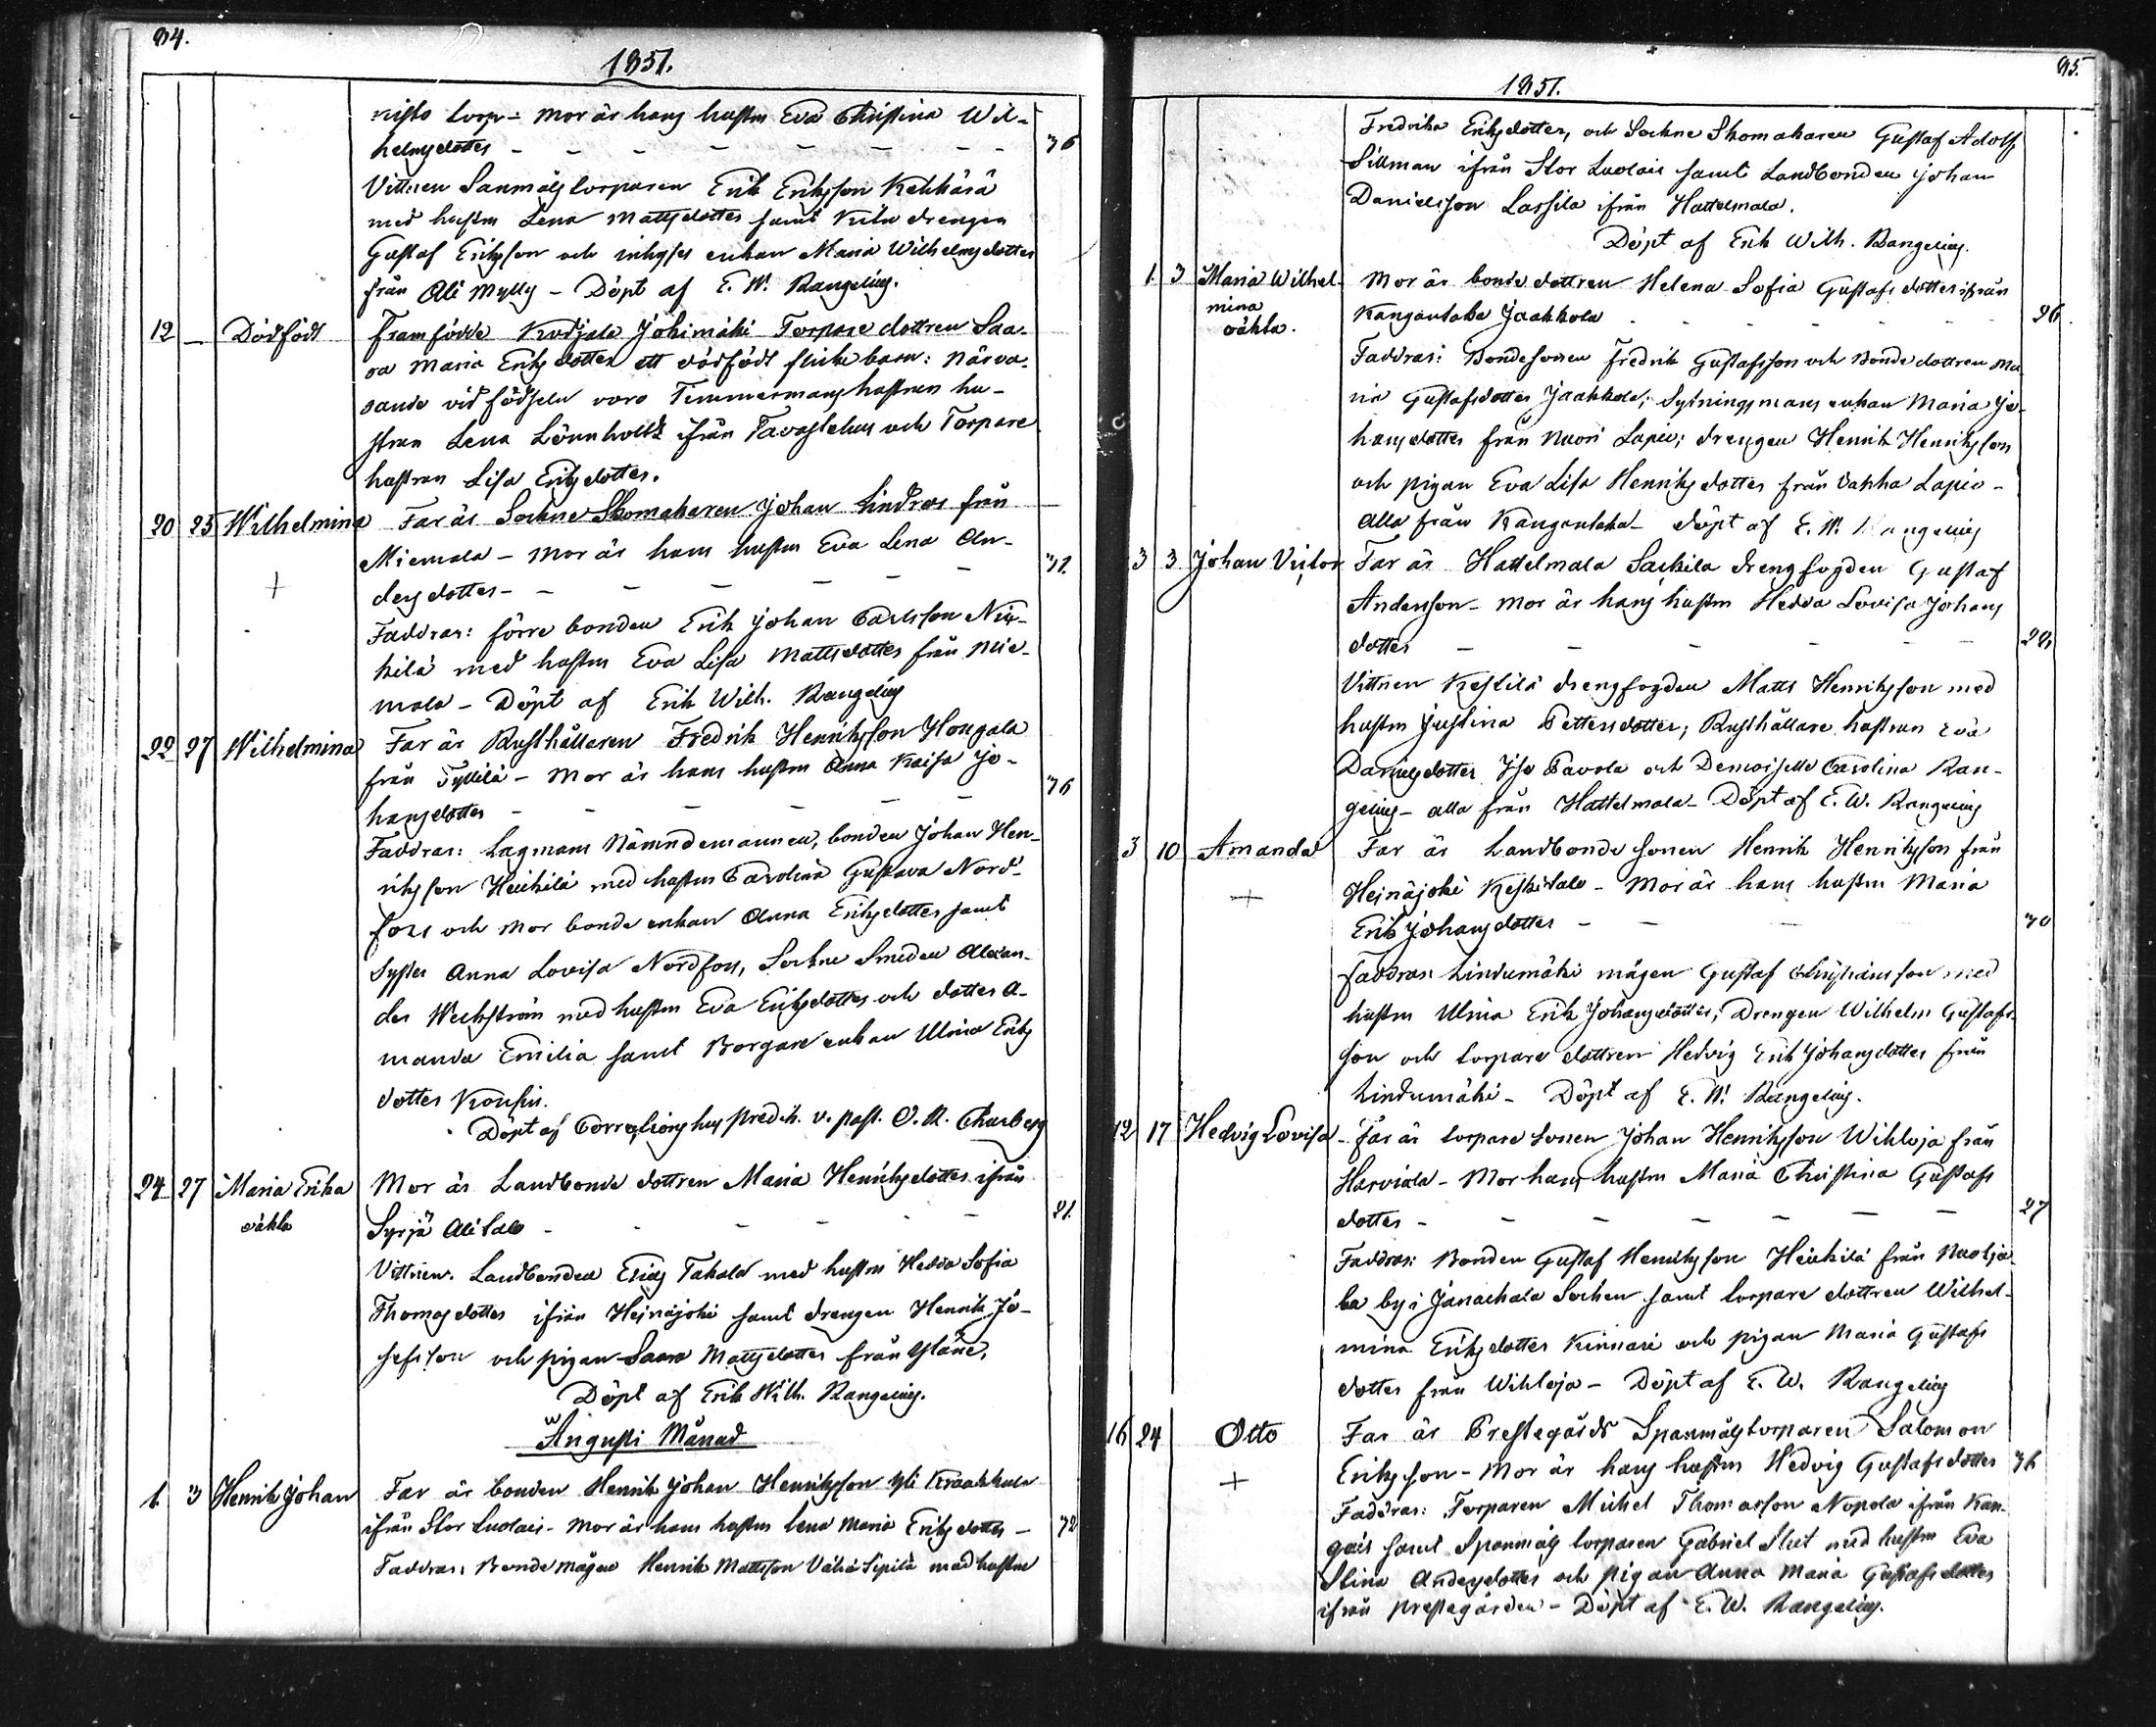 94.
1851.
torp - Mor är hans hustru Eva Christina Wil-
helmsdotter - - - - - - - - 36
Vittnen Spanmålstorparen Erik Eriksson
med hustru Lena Mattsdotter samt drengen
Gustaf Eriksson och inhyses enkan Maria Wilhelmsdotter
från Ali Mylly - Döpt af E. W. Rangelius.
12 - Dödfödt Framfödde Torpare dottren Saa-
ra Maria Eriksdotter ett dödfödt flicke barn: närva-
rande vid födseln voro Timmermans hustrun hu-
strun Lena Lönnholtz ifrån Tavastehus och Torpare
hustrun Lisa Eriksdotter.
20 25 Wilhelmina Far är Sockne Skomakaren Johan Lindros från
Miemala - Mor är hans hustru Eva Lena An-
+ dersdotter - - - - - - 31.
Faddrar: förre bonden Erik Johan Carlsson Nix-
kilä med hustru Eva Lisa Mattsdotter från Mie-
mala - Döpt af Erik Wilh. Rangelius
22 27 Wilhelmina Far är Rusthållaren Fredrik Henriksson Hongala
från - Mor är hans hustru Anna Kaisa Jo-
hansdotter - - - - - - 36
Faddrar: Lagmans Nämndemannen, bonden Johan Hen-
riksson Heikkilä med hustru Carolina Gustava Nord-
fors och Mor bonde enkan Anna Eriksdotter samt
Syster Anna Lovisa Nordfors, Sockne Smeden Alexan-
der Weckström med hustru Eva Eriksdotter och dotter A-
manda Emilia samt Borgare enkan Ulrica Eriks
dotter
Döpt af Corrections hus predik. v. past. O. R.
24 27 Maria Erika Mor är Landbonde dottren Maria Henriksdotter ifrån
oäkta Syrjä Alitalo - - - - - 21.
Vittnen. Landbonden Takala med hustru Hedda Sofia
Thomasdotter ifrån Heinäjoki samt drengen Henrik Jo-
sefsson och pigan Saara Mattsdotter från
Döpt af Erik Wilh. Rangelius.
Augusti Månad
1. 3 Henrik Johan Far är bonden Henrik Johan Henriksson Yli
ifrån Stor Luolais - Mor är hans hustru Lena Maria Eriksdotter - 32
Faddrar: Bonde mågen Henrik Mattsson Vähä Sipilä med hustru
95.
1851.
Fredrika Eriksdotter, och Sockne Skomakaren Gustaf Adolf
Sillman ifrån Stor Luolais samt Landbonden Johan
Danielsson Lassila ifrån Hattelmala.
Döpt af Erik Wilh. Rangelius.
1. 3 Maria Wilhel- Mor är bonde dottren Helena Sofia Gustafsdotter ifrån
mina Kangantaka Jaakkola - - - - - - 26
oäkta.
Faddrar: Bondesonen Fredrik Gustafsson och Bonde dottren Ma-
ria Gustafsdotter Jaakkola; Sytningsmans enkan Maria Jo-
hansdotter från Nuori Lapio; drengen Henrik Henriksson
och pigan Eva Lisa Henriksdotter från Vanha Lapio -
Alla från Kangantaka - döpt af E. W. Rangelius
3 3 Johan Victor Far är Hattelmala drengfogden Gustaf
Andersson - Mor är hans hustru Hedda Lovisa Johans
dotter - - - - - - 28
Vittnen Keskilä drengfogden Matts Henriksson med
hustru Justina Pettersdotter; Rusthållare hustrun Eva
Danielsdotter Iso Pavola och Demoiselle Carolina Ran-
gelius - alla från Hattelmala - Döpt af E. W. Rangelius
3 10 Amanda Far är Landbonde sonen Henrik Henriksson från
+ Heinäjoki Keskitalo - Mor är hans hustru Maria
Erik Johansdotter - - - 30
Faddrar: Lindumäki mågen Gustaf Christiansson med
hustru Ulrica Erik Johansdotter; Drengen Wilhelm Gustafs-
son och torpare dottren Hedvig Erik Johansdotter från
Lindumäki - Döpt af E. W. Rangelius.
12 17 Hedvig Lovisa - Far är torpare sonen Johan Henriksson Wikloja från
Harviala - Mor hans hustru Maria Christina Gustafs
dotter - - - - - - - 27
Faddrar: Bonden Gustaf Henriksson Heikkilä från
by i Janakkala Socken samt torpare dottren Wilhel-
mina Eriksdotter Kinnari och pigan Maria Gustafs
dotter från Wikloja - Döpt af E. W. Rangelius
16 24 Otto Far är Prestegårds Spanmålstorparen Salomon
+ Eriksson - Mor är hans hustru Hedvig Gustafsdotter 36
Faddrar: Torparen Michel Thomasson Nopola ifrån Kan-
gais samt Spanmåls torparen Gabriel med hustru Eva
Stina Andersdotter och pigan Anna Maria Gustafsdotter
ifrån prestegården - Döpt af E. W. Rangelius.